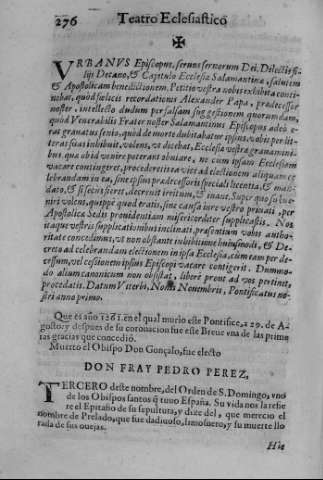 276 Teatro Eclesiastico
✠
VRBANVS Episcopus, seruus seruorum Dei, Dilectis fi-
lijs Decano, & Capitulo Ecclesiæ Salamantinæ, salutem
& Apostolicam benedictionem. Petitio vestra nobis exhibita conti-
nebat, quòd fœlicis recordationis Alexander Papa, prædecessor
noster, intellecto dudum per falsam suggestionem quorumdam,
quòd Venerabilis Frater noster Salamantinus Episcopus adeò e-
rat grauatus senio, quòd de morte dubitabatur ipsius, vobis per lit-
teras suas inhibuit, volens, vt dicebat, Ecclesiæ vestræ grauamini-
bus quæ ob id venire poterant obuiare, ne cum ipsam Ecclesiam
vacare contigeret, procederetis ea vice ad electionem aliquam ce-
lebrandam in ea, sine ipsius prædecessoris speciali licentia, & man-
dato, & si secus fieret, decreuit irritum, & inane. Super quo subue-
niri volens, quippè quod eratis, sine causa iure vestro priuati, per
Apostolicæ Sedis prouidentiam misericorditer supplicastis. Nos
itaque vestris supplicationibus inclinati, præsentium vobis autho-
ritate concedimus, vt non obstante inhibitione huiusmodi, & De-
creto ad celebrandam electionem in ipsa Ecclesia, cùm eam per de-
cessum, vel cessionem ipsius Episcopi vacare contigerit. Dummo-
do aliud canonicum non obsistat, liberè prout ad vos pertinet,
procedatis. Datum Viterbi, Nonis Nouembris, Pontificatus no-
stri anno primo.
Que es año 1261. en el qual muriò este Pontifice, a 29. de A-
gosto: y despues de su coronacion fue este Breue vna de las prime
ras gracias que concediò.
Muerto el Obispo Don Gonçalo, fue electo
DON FRAY PEDRO PEREZ,
TERCERO deste nombre, del Orden de S. Domingo, vno
de los Obispos santos q̃ tuuo España. Su vida nos la refie
re el Epitafio de su sepultura, y dize del, que mereciò el
nombre de Prelado, que fue dadiuoso, limosnero, y su muerte llo
rada de sus ouejas.